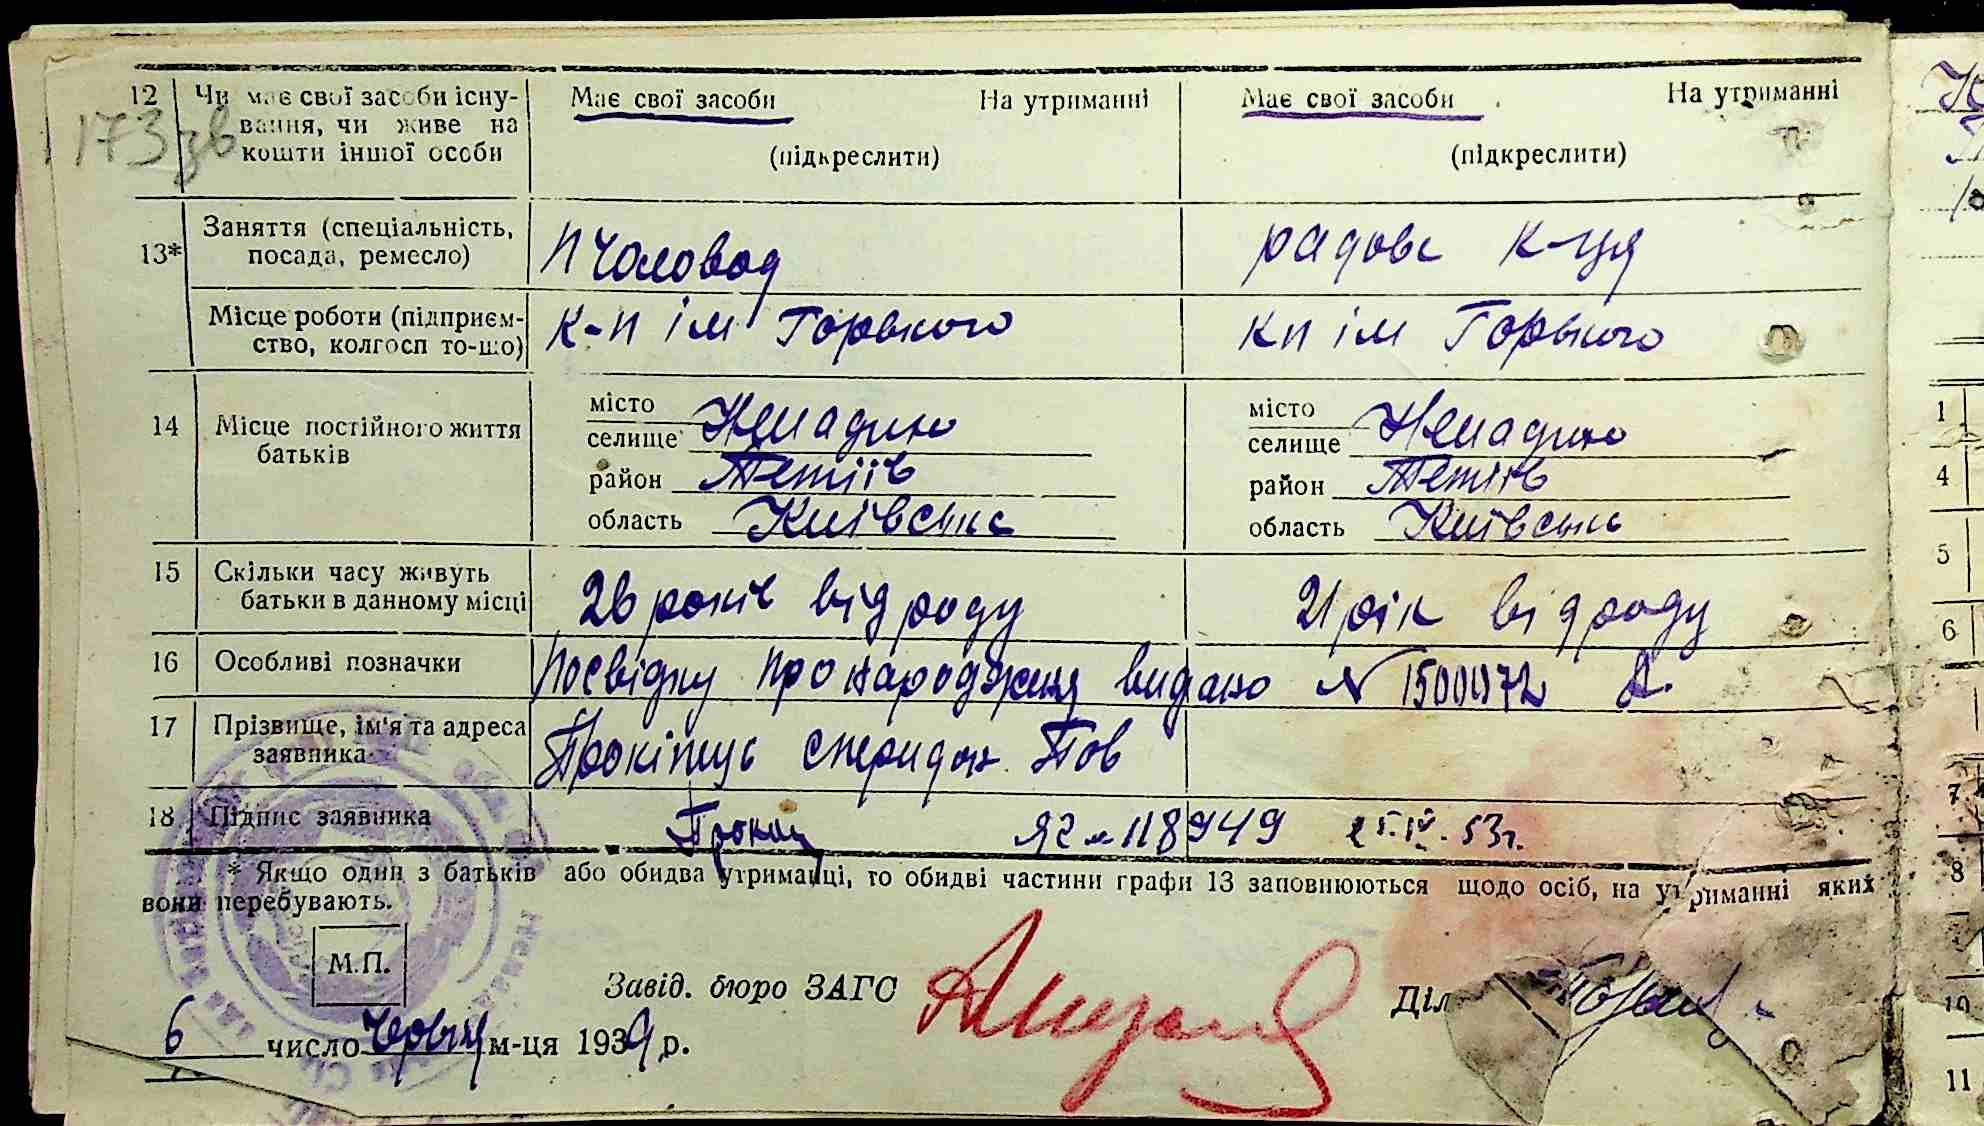 173 зв
12 Чи має свої засоби існування, чи живе на кошти іншої особи
Має свої засоби На утриманні
(підкреслити)
Має свої засоби На утриманні
(підкреслити)
13* Заняття (спеціальність, посада, ремесло)
Пчоловод
радова к-ця
Місце роботи (підприємство, колгосп то-що)
к-п ім Горького
кп ім Горького
14 Місце постійного життя батьків
місто
селище Ненадиха
район Тетіїв
область Київська
місто
селище Ненадиха
район Тетіїв
область Київська
15 Скільки часу живуть батьки в данному місці
26 років від роду
21 рік від роду
16 Особливі позначки
Посвідку про народження видано №
17 Прізвище, ім'я та адреса заявника
Спиридон
18 Підпис заявника
118949 25.IV.53г.
* Якщо один з батьків або обидва утриманці, то обидві частини графи 13 заповнюються щодо осіб, на утриманні яких
вони перебувають.
М.П.
Завід. бюро ЗАГС
Діл
6 число червня м-ця 1939 р.
1
4
5
6
7
8
9
10
11